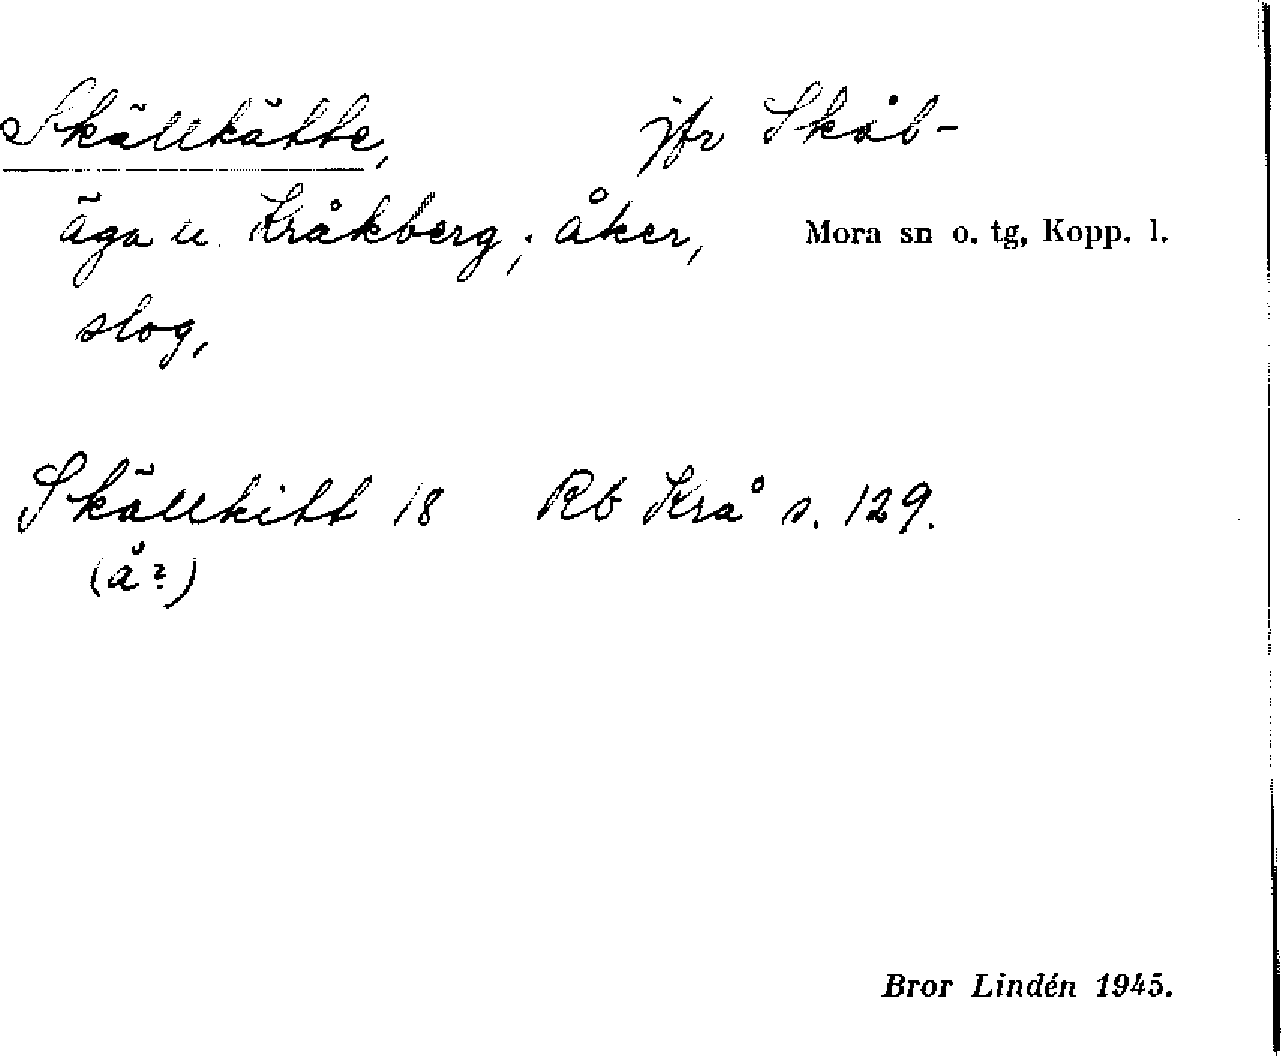 Skällkätte, jfr Skåb-
äga u. Kråkberg; åker, Mora sn o. tg, Kopp. l.
slog,
Skällkitt 18 Rb Krå s. 129.
(å?)
Bror Lindén 1945.